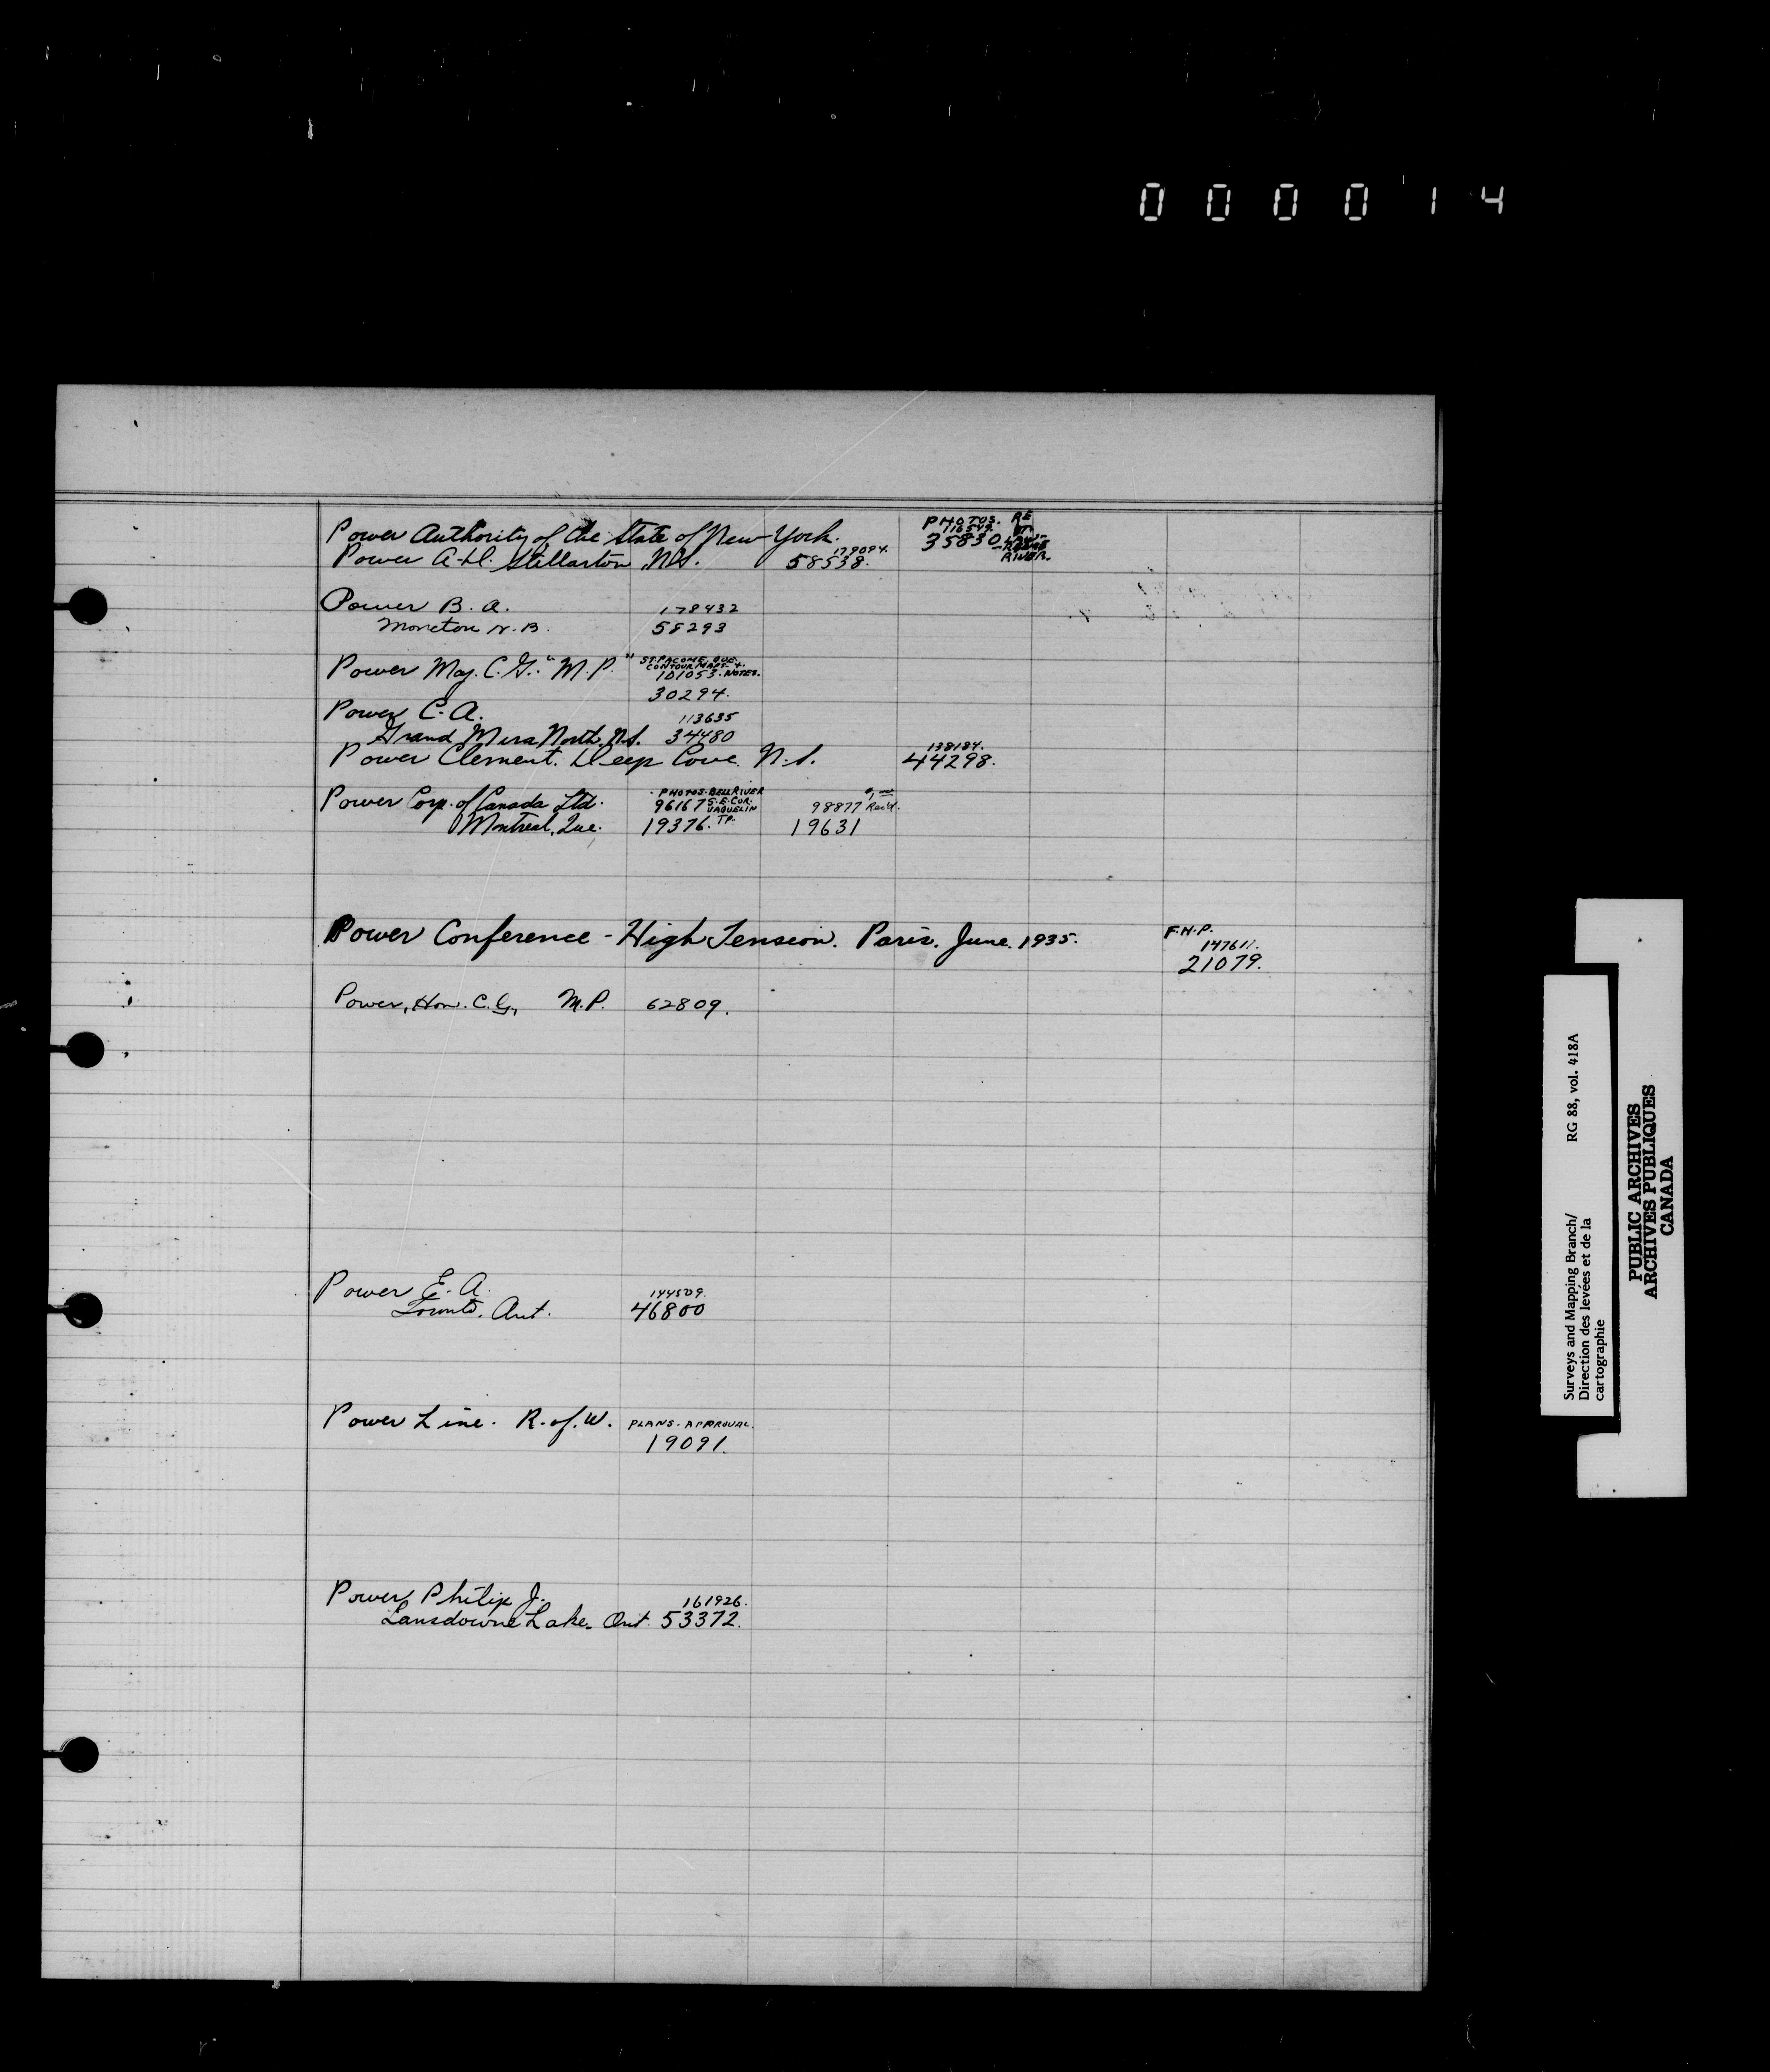 0 0 0 0 1 4
Power Authority of the State of New York. PHOTOS. RE
116549. ST.
35830 LAW-
RENCE
RIVER.
Power A.H. Stellarton, N.S. 179094.
58538.
Power B. A. 178432
Moncton N.B. 58293
Power Maj. C. G. "M.P." ST. PACOME QUE.
CONTOUR MAPT. +
101053. NOTES.
30294.
Power C. A. 113635
Grand Mira North, N.S. 34480
Power Clement. Deep Cove. N.S. 138184.
44298.
Power Corp. of Canada Ltd. PHOTOS. BELL RIVER
96167 S.E. COR. 98877 Rec'd.
VAQUELIN
Montreal, Que. 19376. TP. 19631
Power Conference - High Tension. Paris. June. 1935. F.H.P.
147611.
21079.
Power, Hon. C. G., M.P. 62809.
Power E. A. 144509.
Toronto, Ont. 46800
Power Line. R. of. W. PLANS. APPROVAL.
19091.
Power, Philip J. 161926.
Lansdowne Lake, Ont. 53372.
Surveys and Mapping Branch/ RG 88, vol. 418A
Direction des levées et de la
cartographie
PUBLIC ARCHIVES
ARCHIVES PUBLIQUES
CANADA